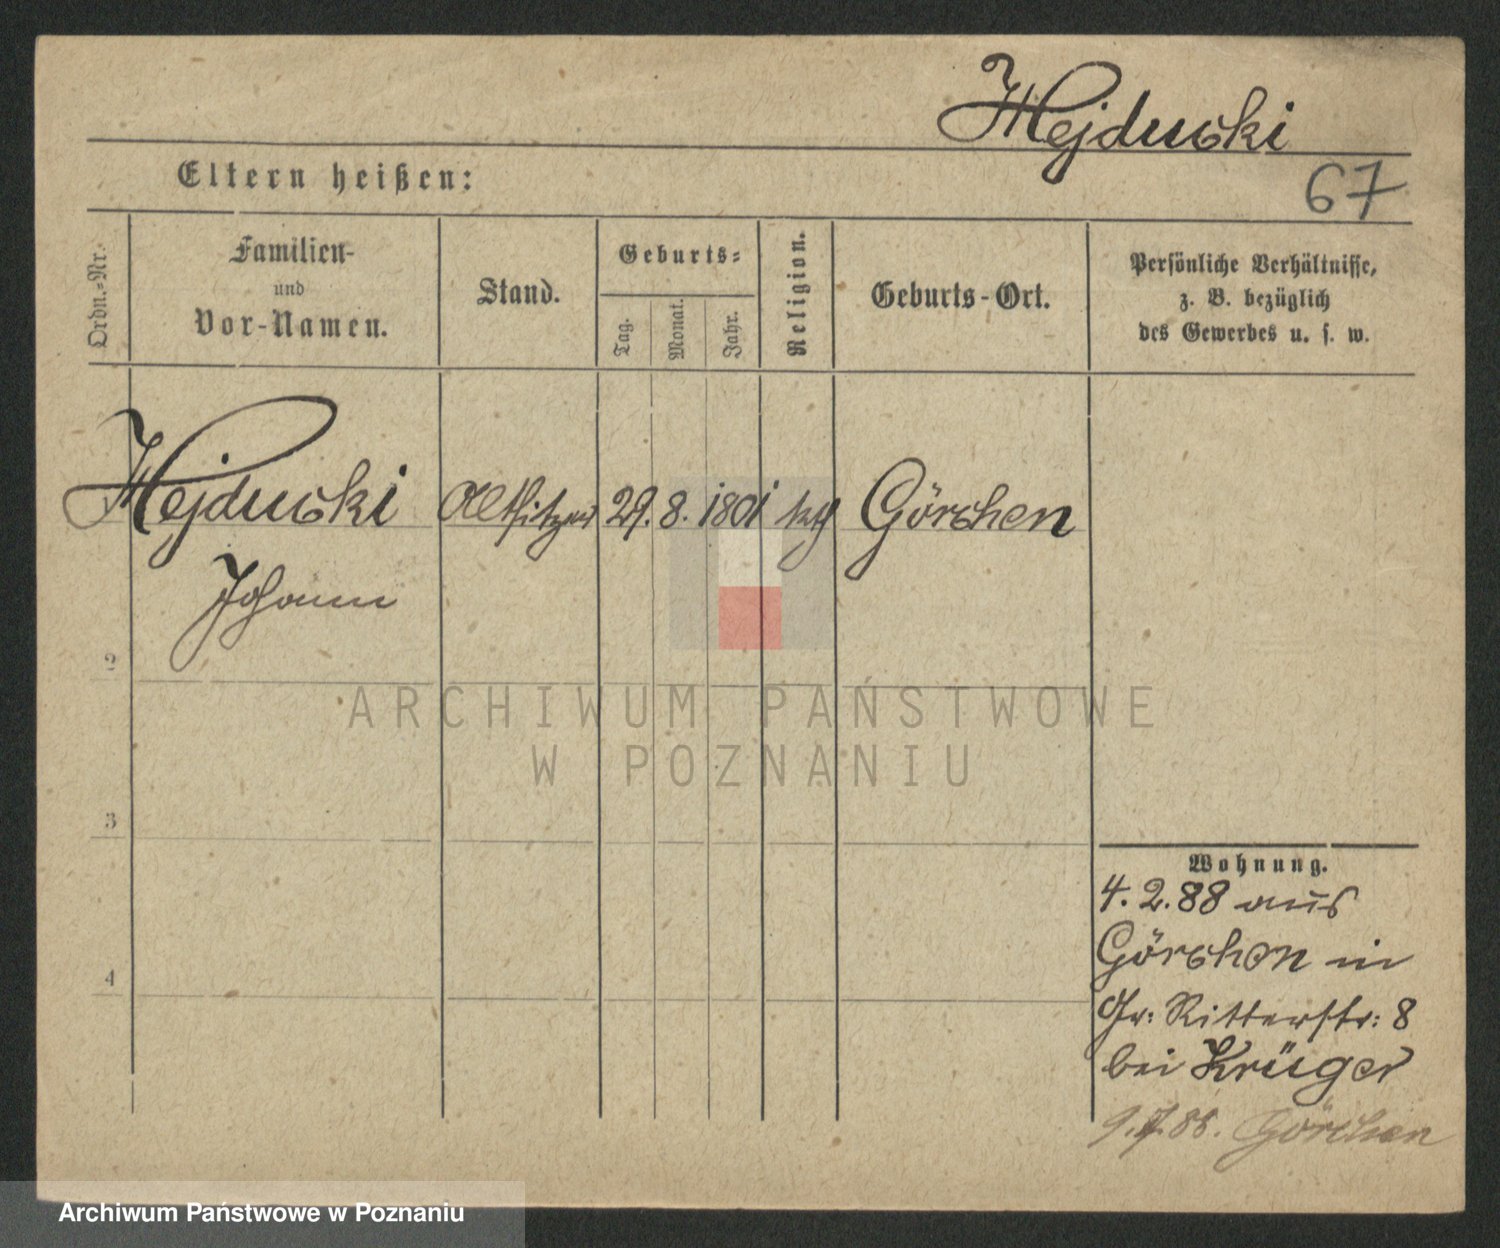 Hejducki
67
Eltern heißen:
Ordn.-Nr.
Familien-
und
Vor-Namen.
Stand.
Geburts-
Tag.
Monat.
Jahr.
Religion.
Geburts-Ort.
Persönliche Verhältnisse,
z. B. bezüglich
des Gewerbes u. s. w.
Hejducki Altsitzer 29. 8. 1801 ktg Görchen
Johann
2
3
4
Wohnung.
4. 2. 88 aus
Görchen in
Gr: Ritterstr: 8
bei Krüger
9.7.88. Görchen
ARCHIWUM PAŃSTWOWE
W POZNANIU
Archiwum Państwowe w Poznaniu